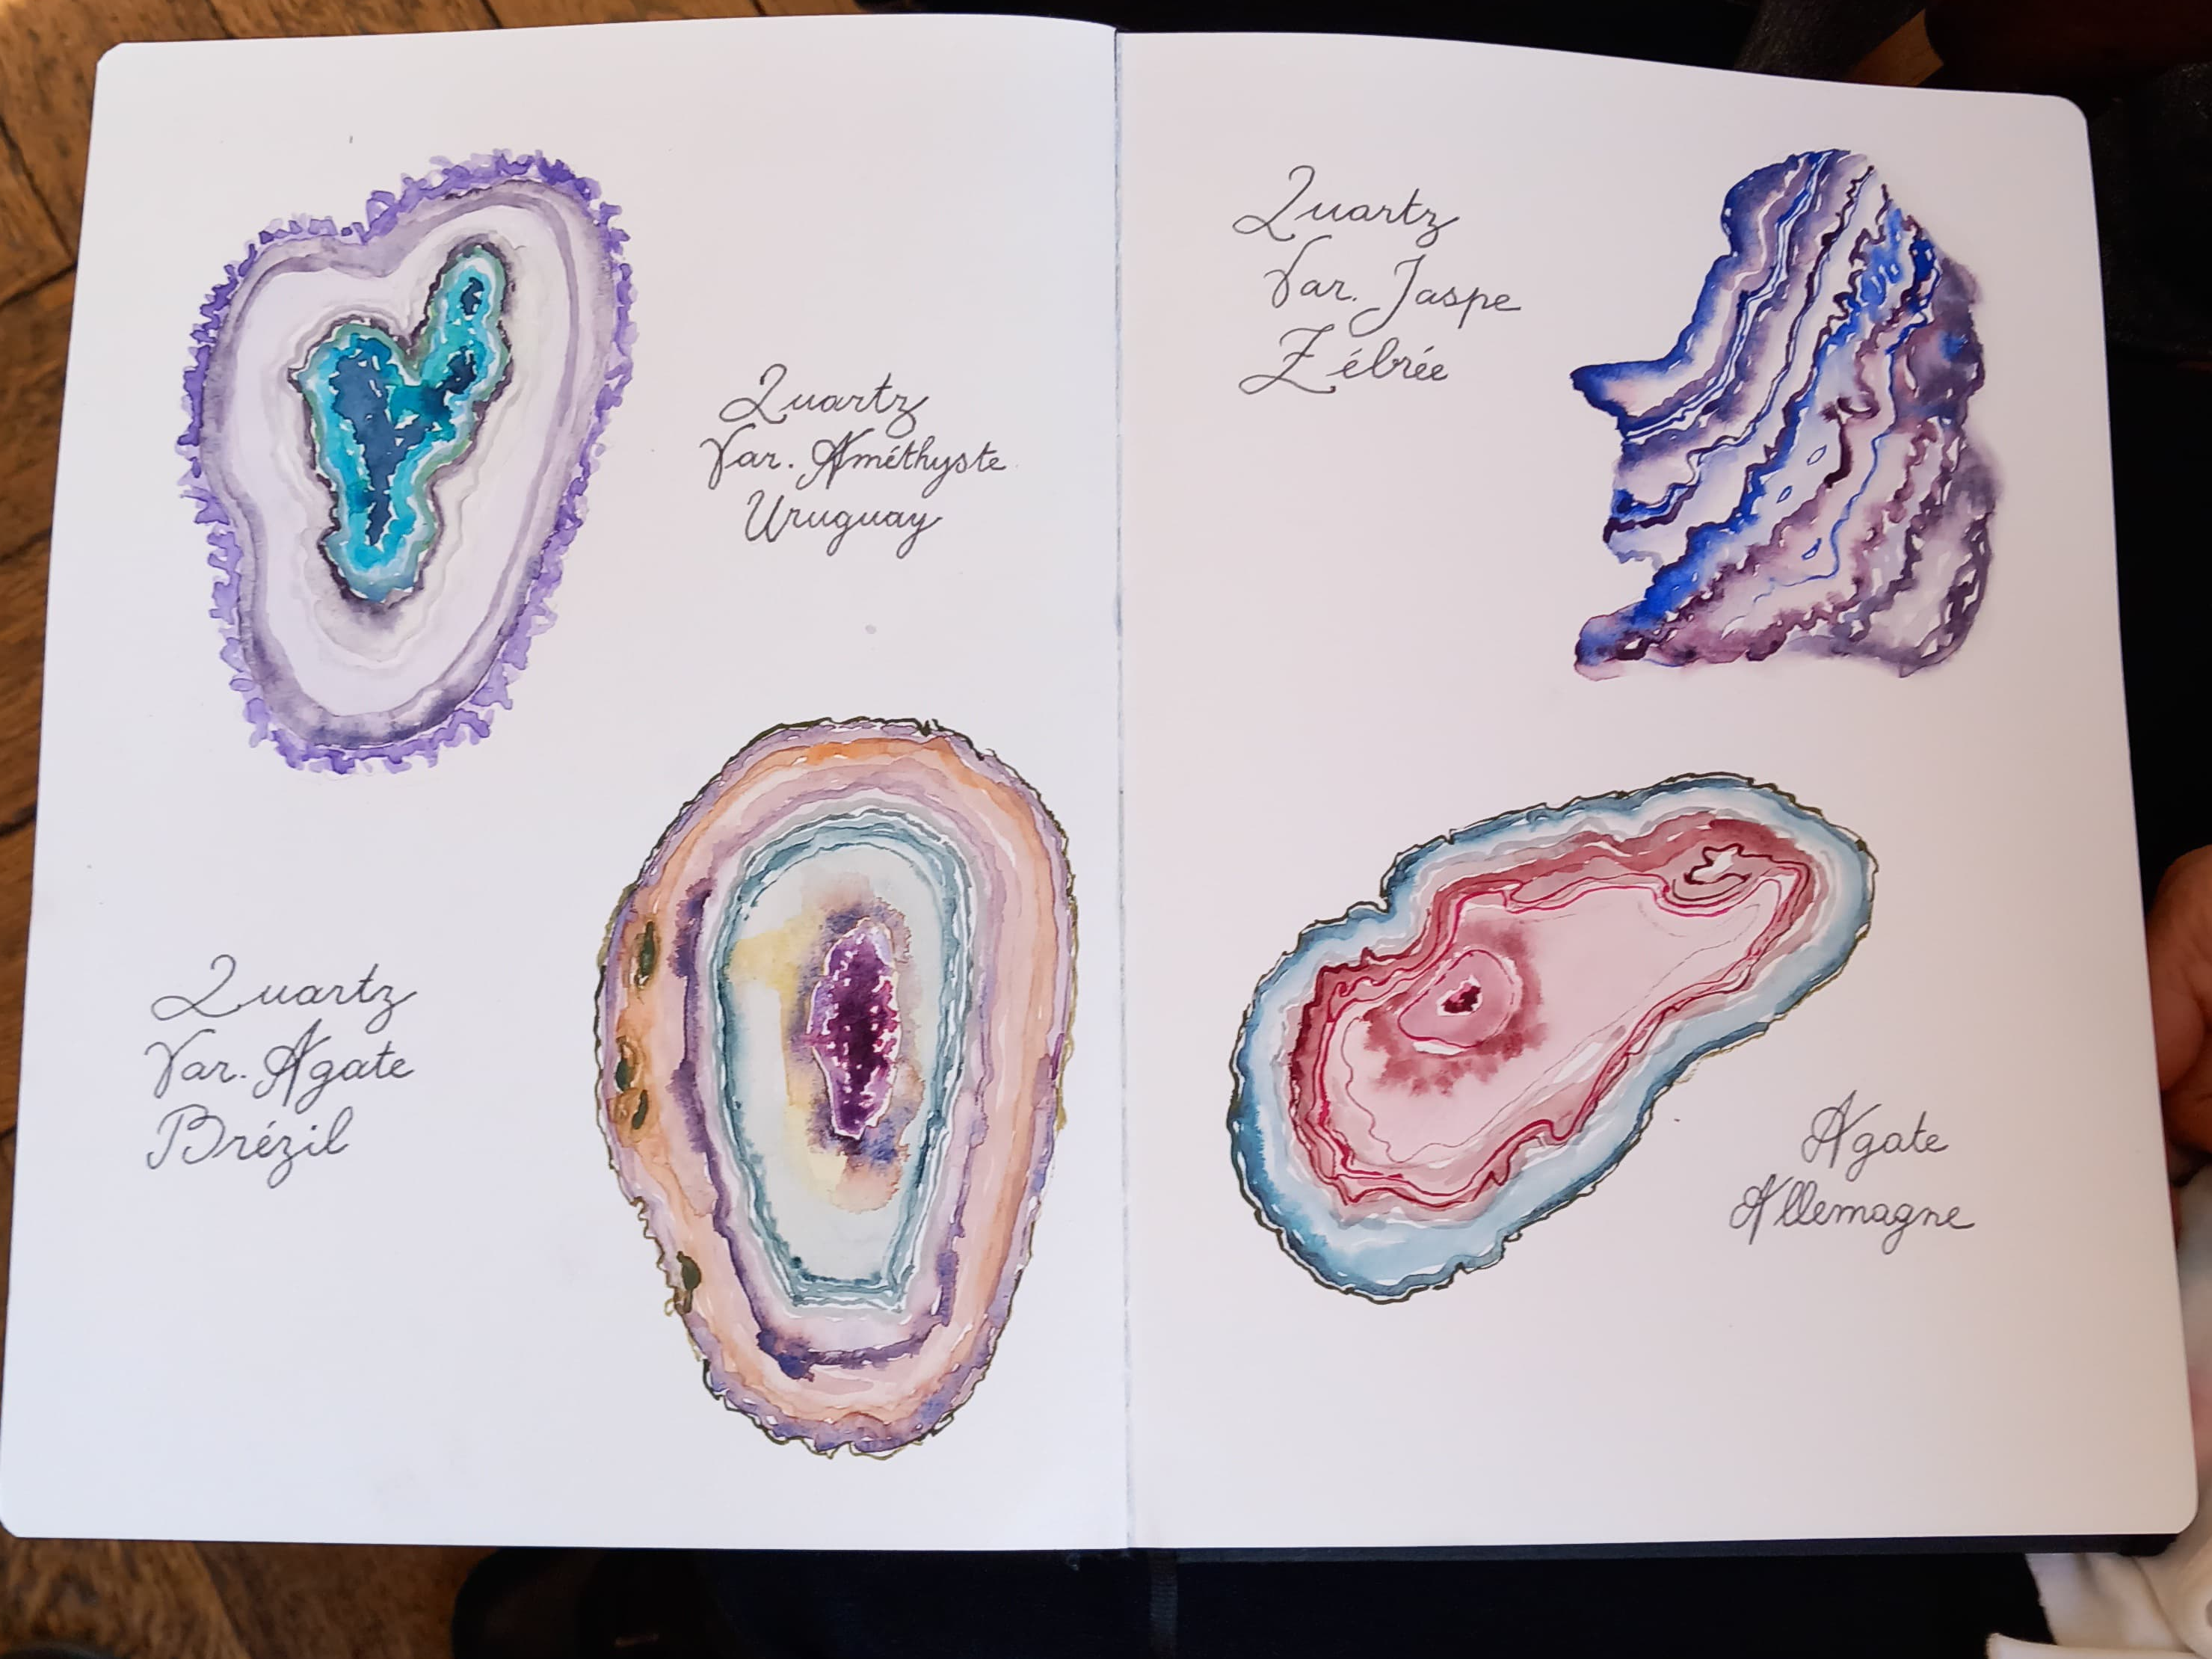 Quartz
Var. Améthyste
Uruguay
Quartz
Var. Agate
Brézil
Quartz
Var. Jaspe
Zébrée
Agate
Allemagne